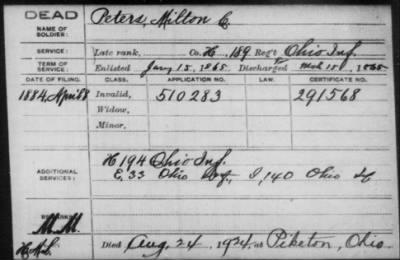 DEAD
NAME OF SOLDIER:
Peters, Milton C.
SERVICE:
Late rank, Co. H, 189 Reg't Ohio Inf.
TERM OF SERVICE:
Enlisted Jany 15, 1865 Discharged 1865
DATE OF FILING. CLASS. APPLICATION NO. LAW. CERTIFICATE NO.
1884, April 8 Invalid, 510283 291568
Widow,
Minor,
ADDITIONAL SERVICES:
H 194 Ohio Inf.
E, 33 Ohio Inf, I, 140 Ohio Inf
REMARKS:
M.M.
Died Aug. 24, 1924, at Piketon, Ohio